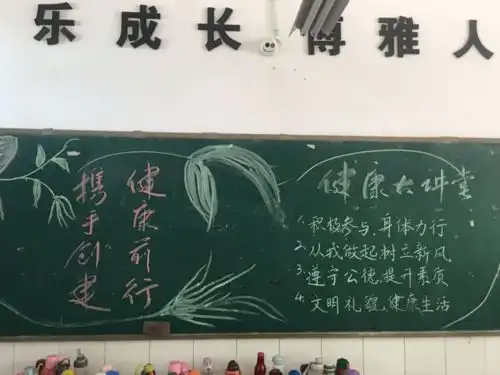 乐成长 博雅人
携手创建
健康前行
健康大讲堂
1.积极参与,身体力行
2.从我做起树立新风
3.遵守公德,提升素质
4.文明礼貌,健康生活